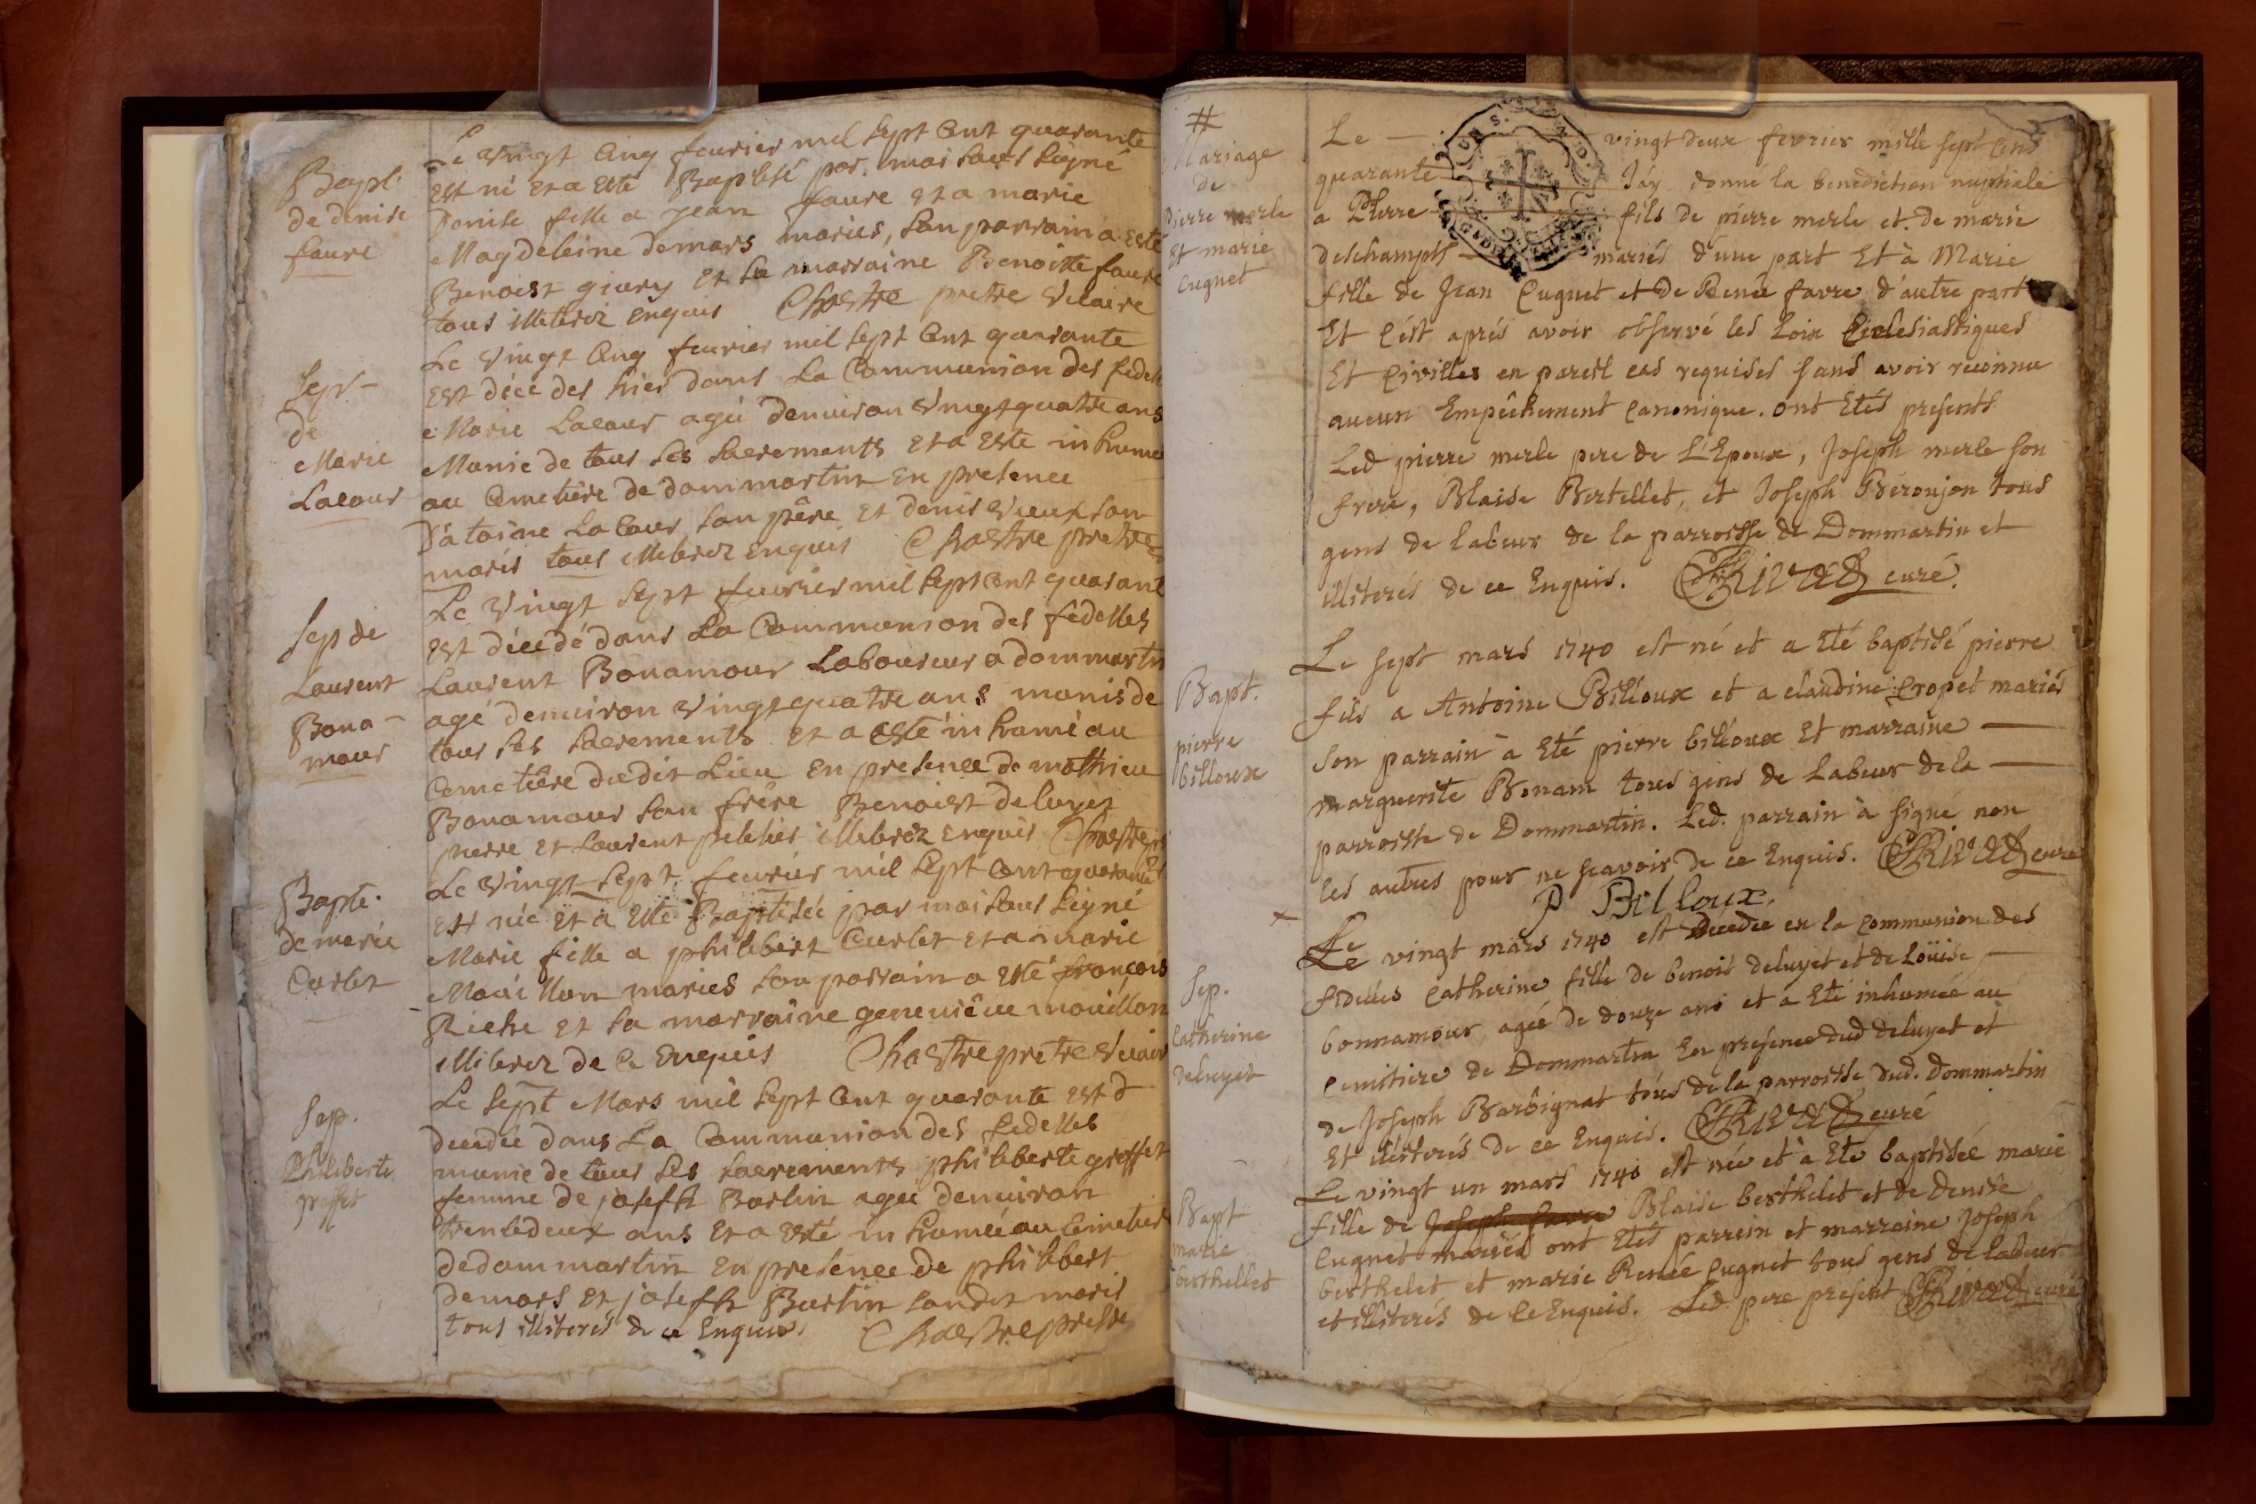 Bapt.
de denise
faure
Le vingt cinq feurier mil sept cent quarante
est né et a esté Baptisé par moi sous signé
Denise fille a jean faure et a marie
Magdeleine demars mariés, son parrain a esté
Benoist giury et sa marraine Benoitte faure
tous illiterez enquis Chastre pretre vicaire
Sep.
de
Marie
Lacour
Le vingt cinq feurier mil sept cent quarante
est décédés hier dans La Communion des fidel
Marie Lacour agée denuiron vingt quatre ans
Munie de tous les sacrements et a esté inhume
au Cimetière de dommartin en presence
D'atoine Lacour son père et denis vieux son
maris tous illiterez enquis Chastre pretre
Sep de
Laurent
Bona-
mour
Le vingt sept feurier mil sept cent quarant
est décedé dans La Communion des fidelles
Laurent Bonamour Laboureur a dommartin
agé denuiron vingt quatre ans munis de
tous les sacrements et a esté inhumé au
Cemetière dudit Lieu en presence de mathieu
Bonamour son frère Benoist deluyet
pierre et Laurent pelletier illiterez enquis Chastre p
Bapte.
de marie
Curlet
Le vingt sept feurier mil sept cent quarante
est née et a esté Baptisée par moi sous signé
Marie fille a philibert Curlet et a marie
Mouillon mariés son parrain a esté françois
Riche et sa marraine geneuiève mouillon
illiterez de ce enquis Chastre pretre vicair
Sep.
Philiberte
groffet
Le sept Mars mil sept cent quarante est d
decedée dans La Communion des fidelles
munie de tous les sacrements philiberte groffet
femme de joseph Barlin agée denuiron
trentedeux ans et a esté inhumée au Cimetier
de dommartin en presence de philibert
demars et joseph Barlin sondit maris
tous illiterés de ce Enquis. Chastre pretre
#
Mariage
de
Pierre merle
et marie
Cugnet
Le vingt deux fevrier mille sept cens
quarante Jay donné la benediction nuptiale
a Pierre fils de pierre merle et de marie
deschamps mariés d'une part Et à Marie
fille de Jean Cugnet et de Renée favre d'autre part
Et c'est aprés avoir observé les Loix Ecclesiastiques
Et Civilles en pareil cas requises sans avoir reconnu
aucun Empêchement Canonique. ont Etés presents
Led pierre merle pere de L'Epoux, Joseph merle son
frere, Blaise Bertellet, et Joseph Beroujon tous
gens de labeur de la parroisse de Dommartin et
illiterés de ce Enquis. Rivat curé.
Bapt.
pierre
billoux
Le sept mars 1740 est né et a Eté baptisé pierre
fils a Antoine Billoux et a claudine Cropet mariés
son parrain a Eté pierre billoux Et marraine
marguerite Bonam tous gens de Labeur de la
parroisse de Dommartin. Led. parrain a signé non
les autres pour ne scavoir de ce Enquis. Rivat curé
P Billoux.
Sep.
Catherine
deluyet
Le
Le vingt mars 1740 est decedée en la Communion des
fidelles Catherine fille de benoit deluyet et de Loüise
bonnamour, agée de douze ans et a Eté inhumée au
cemitiere de Dommartin En presence dud deluyet et
de Joseph Barbignat tous de la parroisse dud. Dommartin
Et illiterés de ce Enquis. Rivat curé
Bapt
marie
berthellet
Le vingt un mars 1740 est née et à Eté baptisée marie
fille de Joseph favre Blaise berthelet et de Denise
Cugnet mariés ont Etés parrein et marraine Joseph
berthelet et marie Renée Cugnet tous gens de labeur
et illiterés de ce Enquis. Led. pere present Rivat curé